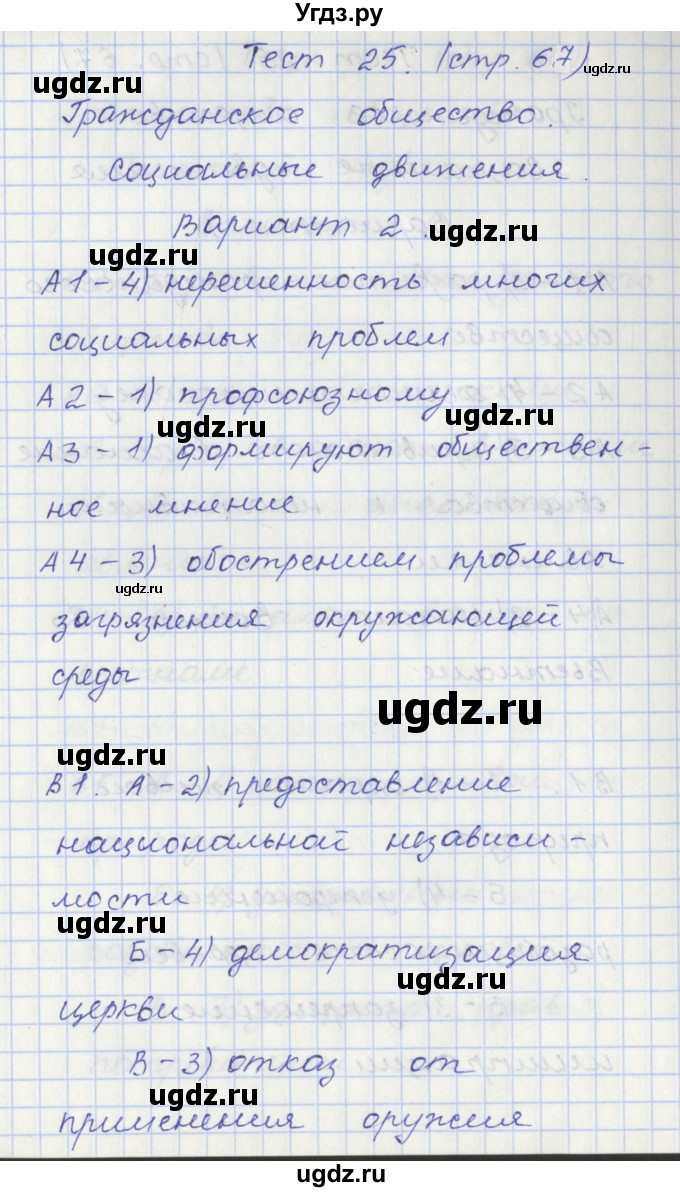 Угдз.ру
Тест 25. (стр. 67)
ugdz.ru
ugdz.ru
Гражданское общество.
социальные движения.
Вариант 2.
ugdz.ru
ugdz.ru
А1 - 4) нерешенность многих
социальных проблем
А2 - 1) профсоюзному
ugdz.ru
ugdz.ru
А3 - 1) формируют обществен-
ное мнение
А4 - 3) обострением проблемы
ugdz.ru
загрязнения окружающей
среды
ugdz.ru
ugdz.ru
В1. А - 2) предоставление
национальной независи-
мости
ugdz.ru
Б - 4) демократизация
ugdz.ru
церкви
В - 3) отказ от
ugdz.ru
применения оружия
ugdz.ru